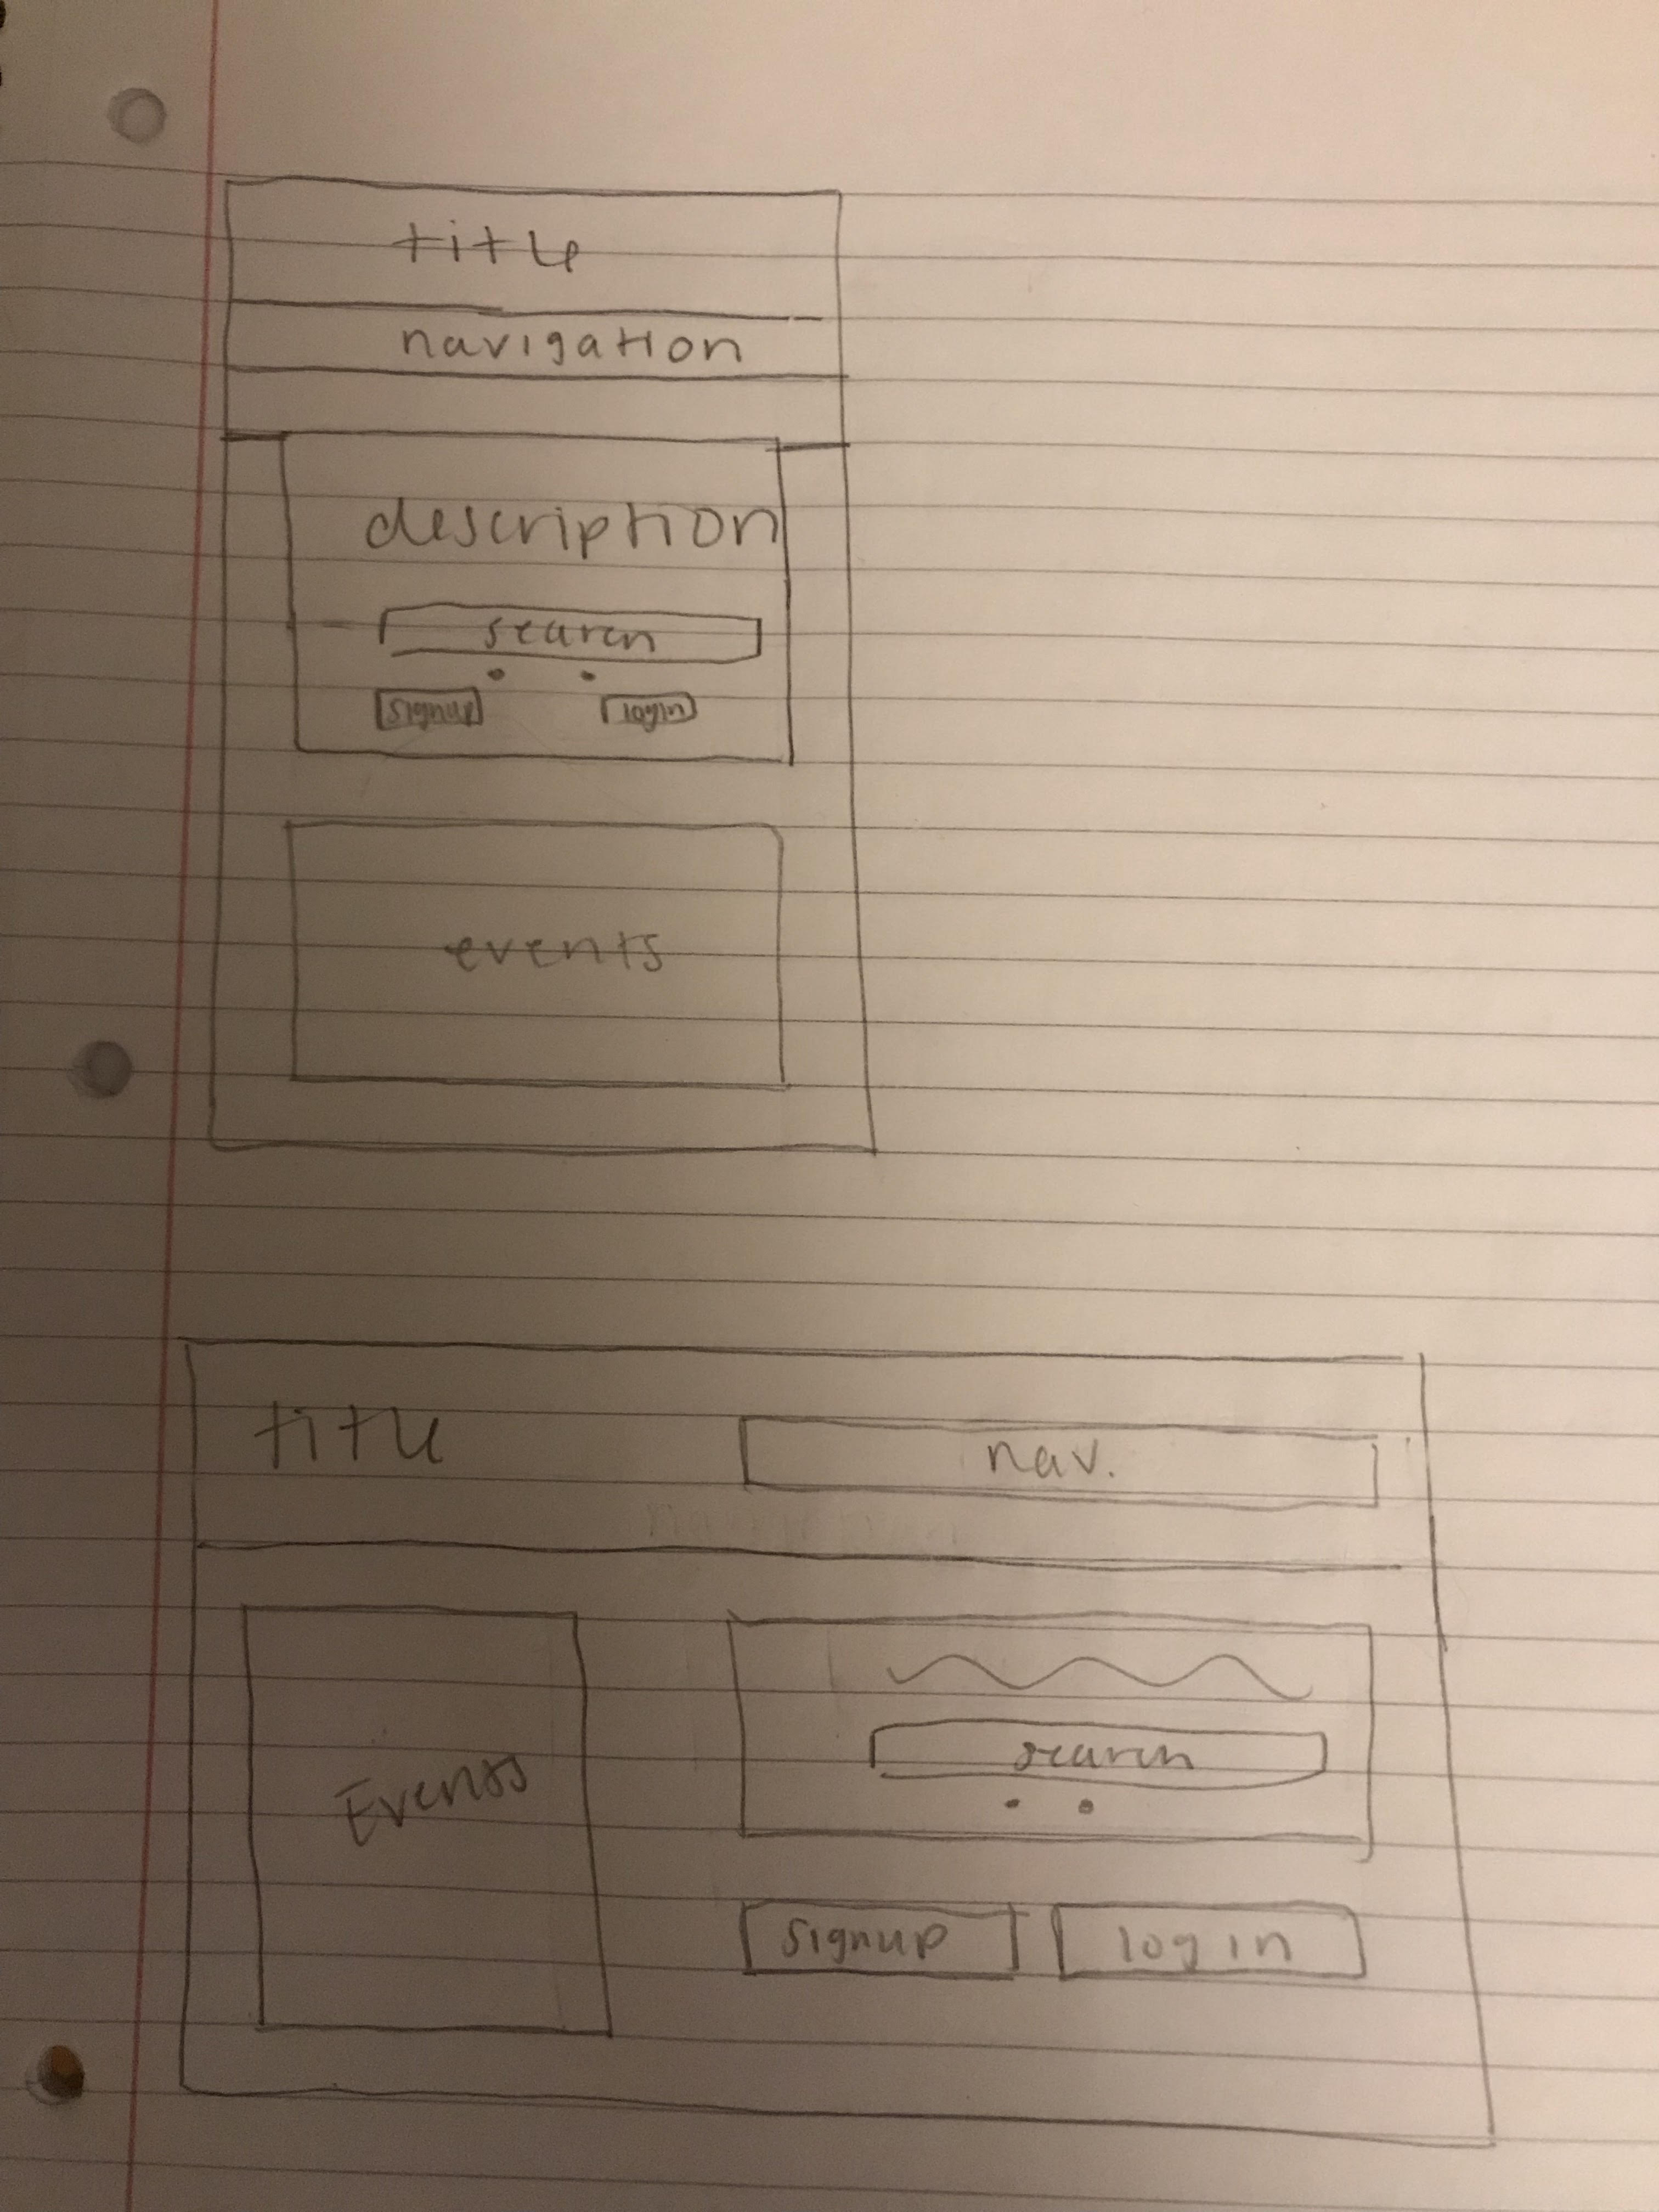 title
navigation
description
search
signup login
events
title nav.
search
Events
signup log in